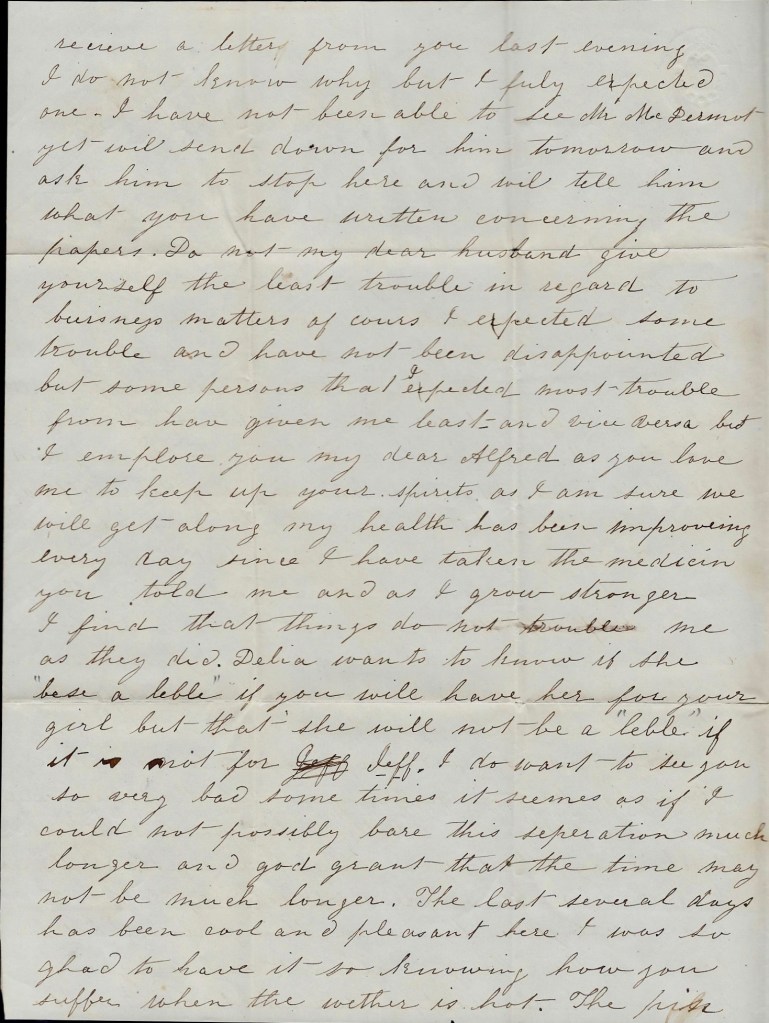 recieve a letter from you last evening
I do not know why but I fuly expected
one - I have not been able to see Mr McDermot
yet wil send down for him tomorrow and
ask him to stop here and wil tell him
what you have written concerning the
papers. Do not my dear husband give
yourself the least trouble in regard to
buisness matters of cours I expected some
trouble and have not been disappointed
but some persons that I expected most trouble
from have given me least - and vice versa but
I emplore you my dear Alfred as you love
me to keep up your spirits as I am sure we
will get along my health has been improveing
every day since I have taken the medicin
you told me and as I grow stronger
I find that things do not trouble me
as they did. Delia wants to know if she
"bese a leble" if you will have her for your
girl but that she will not be a "leble" if
it is not for Jeff Jeff. I do want to see you
so very bad some times it seemes as if I
could not possibly bare this seperation much
longer and god grant that the time may
not be much longer. The last several days
has been cool and pleasant here I was so
ghad to have it so knowing how you
suffer when the wether is hot. The